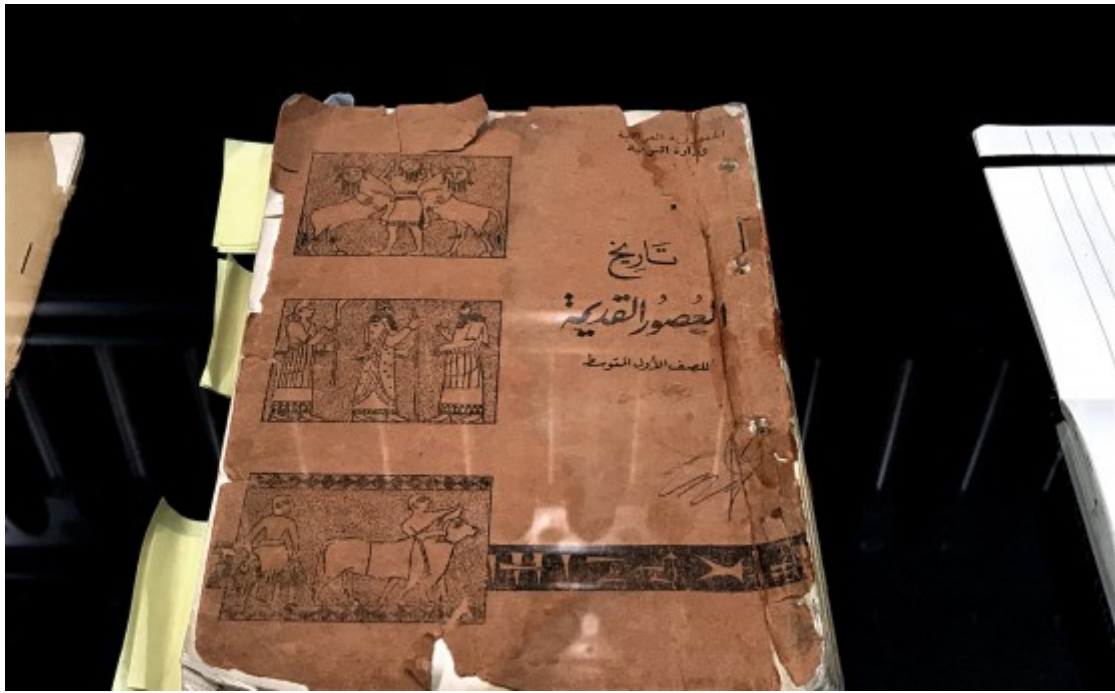 الجمهورية العراقية
وزارة التربية
تَاريخ
العُصُور القَديمة
للصف الأول المتوسط